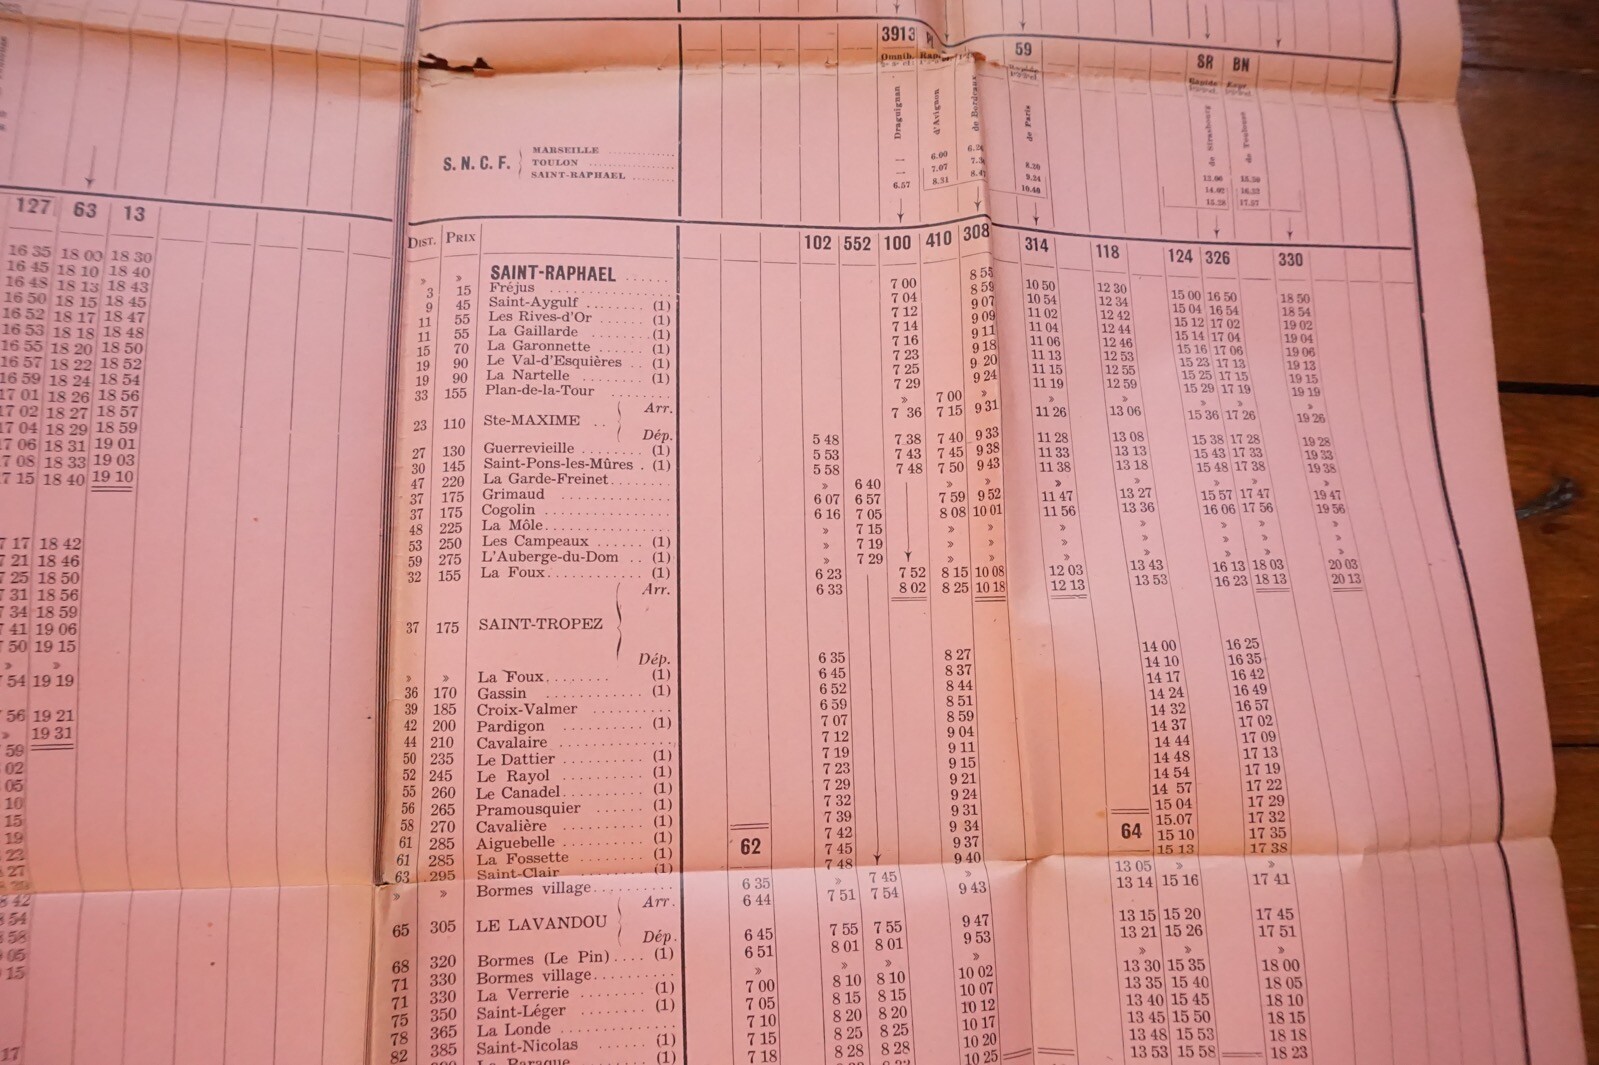 3913 59 SR BN
Omnib. Rapide Rapide Expr.
Draguignan d'Avignon de Bordeaux de Paris de Strasbourg de Toulouse
S. N. C. F. MARSEILLE 6.00 8.20 13.00 15.50
TOULON 7.07 9.24 14.02 16.52
SAINT-RAPHAEL 6.57 8.51 10.40 15.20 17.57
127 63 13
16 35 18 00 18 30
16 45 18 10 18 40
16 48 18 13 18 43
16 50 18 15 18 45
16 52 18 17 18 47
16 53 18 18 18 48
16 55 18 20 18 50
16 57 18 22 18 52
16 59 18 24 18 54
17 01 18 26 18 56
17 02 18 27 18 57
17 04 18 29 18 59
17 06 18 31 19 01
17 08 18 33 19 03
17 15 18 40 19 10
17 18 42
21 18 46
25 18 50
31 18 56
34 18 59
41 19 06
50 19 15
» »
54 19 19
56 19 21
» 19 31
59
02
05
10
15
19
22
27
42
54
58
05
15
17
DIST. PRIX 102 552 100 410 308 314 118 124 326 330
» » SAINT-RAPHAEL 7 00 8 55 10 50 12 30 15 00 16 50 18 50
3 15 Fréjus 7 04 8 59 10 54 12 34 15 04 16 54 18 54
9 45 Saint-Aygulf (1) 7 12 9 07 11 02 12 42 15 12 17 02 19 02
11 55 Les Rives-d'Or (1) 7 14 9 09 11 04 12 44 15 14 17 04 19 04
11 55 La Gaillarde (1) 7 16 9 11 11 06 12 46 15 16 17 06 19 06
15 70 La Garonnette (1) 7 23 9 18 11 13 12 53 15 23 17 13 19 13
19 90 Le Val-d'Esquières (1) 7 25 9 20 11 15 12 55 15 25 17 15 19 15
19 90 La Nartelle (1) 7 29 9 24 11 19 12 59 15 29 17 19 19 19
33 155 Plan-de-la-Tour » 7 00 » » » » » »
23 110 Ste-MAXIME Arr. 7 36 7 15 9 31 11 26 13 06 15 36 17 26 19 26
Dép. 5 48 7 38 7 40 9 33 11 28 13 08 15 38 17 28 19 28
27 130 Guerrevieille (1) 5 53 7 43 7 45 9 38 11 33 13 13 15 43 17 33 19 33
30 145 Saint-Pons-les-Mûres (1) 5 58 7 48 7 50 9 43 11 38 13 18 15 48 17 38 19 38
47 220 La Garde-Freinet » 6 40 » » » » » » »
37 175 Grimaud 6 07 6 57 7 59 9 52 11 47 13 27 15 57 17 47 19 47
37 175 Cogolin 6 16 7 05 8 08 10 01 11 56 13 36 16 06 17 56 19 56
48 225 La Môle » 7 15 » » » » » »
53 250 Les Campeaux (1) » 7 19 » » » » » »
59 275 L'Auberge-du-Dom (1) » 7 29 » » » » » »
32 155 La Foux (1) 6 23 7 52 8 15 10 08 12 03 13 43 16 13 18 03 20 03
37 175 SAINT-TROPEZ Arr. 6 33 8 02 8 25 10 18 12 13 13 53 16 23 18 13 20 13
Dép. 6 35 8 27 14 00 16 25
» » La Foux (1) 6 45 8 37 14 10 16 35
36 170 Gassin (1) 6 52 8 44 14 17 16 42
39 185 Croix-Valmer 6 59 8 51 14 24 16 49
42 200 Pardigon (1) 7 07 8 59 14 32 16 57
44 210 Cavalaire 7 12 9 04 14 37 17 02
50 235 Le Dattier (1) 7 19 9 11 14 44 17 09
52 245 Le Rayol (1) 7 23 9 15 14 48 17 13
55 260 Le Canadel (1) 7 29 9 21 14 54 17 19
56 265 Pramousquier (1) 7 32 9 24 14 57 17 22
58 270 Cavalière (1) 7 39 9 31 15 04 17 29
61 285 Aiguebelle (1) 7 42 9 34 15.07 17 32
61 285 La Fossette (1) 62 7 45 9 37 64 15 10 17 35
63 295 Saint-Clair (1) 7 48 9 40 15 13 17 38
» » Bormes village 6 35 » 7 45 » 13 05 » »
65 305 LE LAVANDOU Arr. 6 44 7 51 7 54 9 43 13 14 15 16 17 41
Dép. 6 45 7 55 7 55 9 47 13 15 15 20 17 45
68 320 Bormes (Le Pin) (1) 6 51 8 01 8 01 9 53 13 21 15 26 17 51
71 330 Bormes village » » » » » » »
71 330 La Verrerie (1) 7 00 8 10 8 10 10 02 13 30 15 35 18 00
75 350 Saint-Léger (1) 7 05 8 15 8 15 10 07 13 35 15 40 18 05
78 365 La Londe 7 10 8 20 8 20 10 12 13 40 15 45 18 10
82 385 Saint-Nicolas (1) 7 15 8 25 8 25 10 17 13 45 15 50 18 15
(1) 7 18 8 28 8 28 10 20 13 48 15 53 18 18
10 25 13 53 15 58 18 23